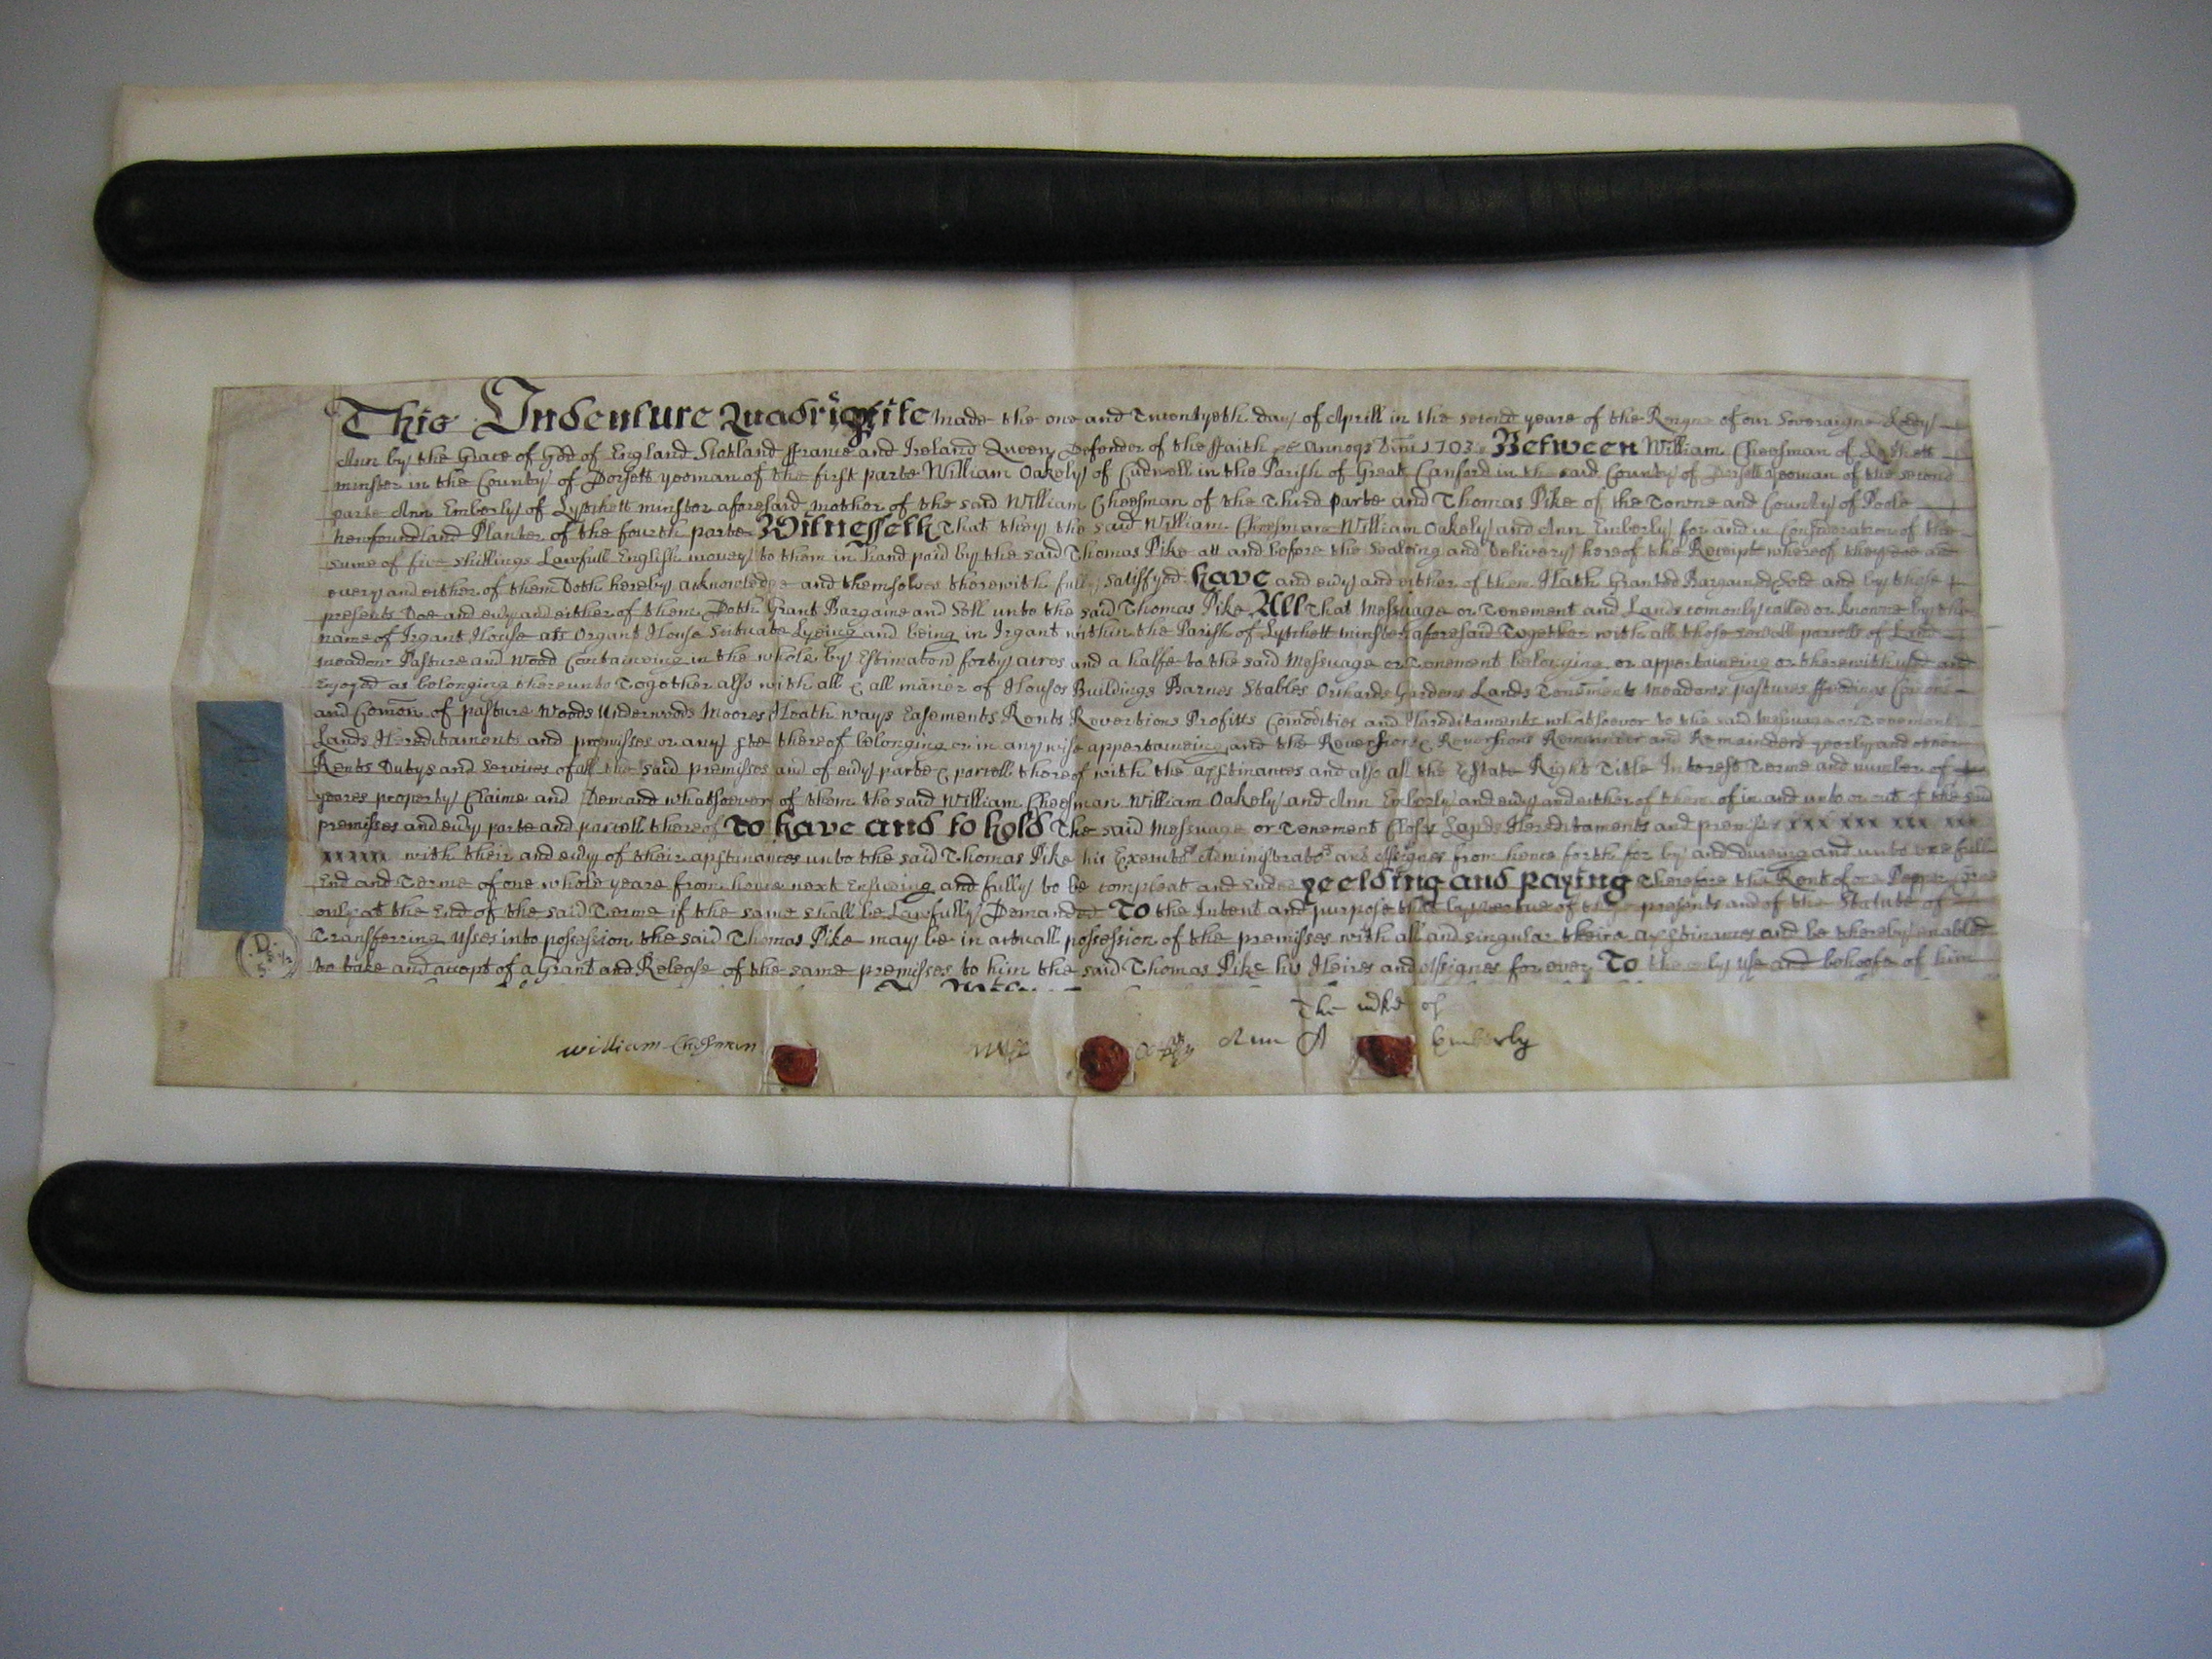 This Indenture Quadrip̱tite made the one and Twentyeth day of Aprill in the second yeare of the Reigne of our Soveraigne Lady
Ann by the Grace of God of England Scotland ffrance and Ireland Queen Defender of the ffaith &c Annoqz Dm̄ 1703 Between William Cheesman of Lytchett
minster in the County of Dorsett yeoman of the first parte William Oakely of Cudnell in the Parish of Great Canford in the said County of Dorsett yeoman of the second
parte Ann Emberly of Lytchett minster aforesaid mother of the said William Cheesman of the Third parte and Thomas Pike of the Towne and County of Poole
newfoundland Planter of the fourth parte Witnesseth That they the said William Cheesman William Oakely and Ann Emberly for and in Consideration of the
sume of five shillings Lawfull English money to them in hand paid by the said Thomas Pike att and before the Sealeing and Delivery hereof the Receipt whereof they doe and
every and either of them Doth hereby acknowledge and themselves therewith fully satisfyed have and ev̄y and either of them Hath Granted Bargained Sold and by these
presents Doe and ev̄y and either of them Doth Grant Bargaine and Sell unto the said Thomas Pike All That Messuage or Tenement and Lands comonly called or knowne by the
name of Irgant House als Organt House Scituate Lyeing and being in Irgant within the Parish of Lytchett minster aforesaid Together with all those severall parcells of Land
meadow Pasture and Wood Containeing in the whole by Estimation forty acres and a halfe to the said Messuage or Tenement belonging or apperteineing or therewith used and
Enjoyed as belonging thereunto Together also with all & all maner of Houses Buildings Barnes Stables Orchards Gardens Lands Tenements Meadows pastures ffeedings Comons
and Comon of pasture Woods Underwoods Moores Heath ways Easements Rents Revertions Profitts Comodities and Hereditaments whatsoever to the said Messuage or Tenement
Lands Hereditaments and premisses or any p̱te thereof belonging or in any wise apperteineing and the Reversion & Reversions Remainder and Remainders yearly and other
Rents Dutys and Services of all the said premisses and of ev̄y parte & parcell thereof with the appt̄inances and also all the Estate Right Title Interest Terme and number of
yeares property Claime and Demand whatsoever of them the said William Cheesman William Oakely and Ann Emberly and ev̄y and either of them of in and unto or out of the said
premisses and ev̄y parte and parcell thereof To have and to hold The said Messuage or Tenement Closes Lands Hereditaments and premisses xxx xxx xxx xxx
xxxxx with their and ev̄y of their appt̄inances unto the said Thomas Pike his Executors Administrators and Assignes from hence forth for by and dureing and unto the full
End and Terme of one whole yeare from hence next Ensueing and fully to be compleat and Ended yeelding and paying Therefore the Rent of one Pepper corne
only at the End of the said Terme if the same shall be Lawfully Demanded To the Intent and purpose that by vertue of these presents and of the Statute of
Transferring Usses into possession the said Thomas Pike may be in actuall possession of the premisses with all and singular theire appt̄inances and be thereby enabled
to take and accept of a Grant and Release of the same premisses to him the said Thomas Pike his Heires and Assignes for ever To the only use and behoofe of him
The mke of
william Cheesman Ann A Emberly